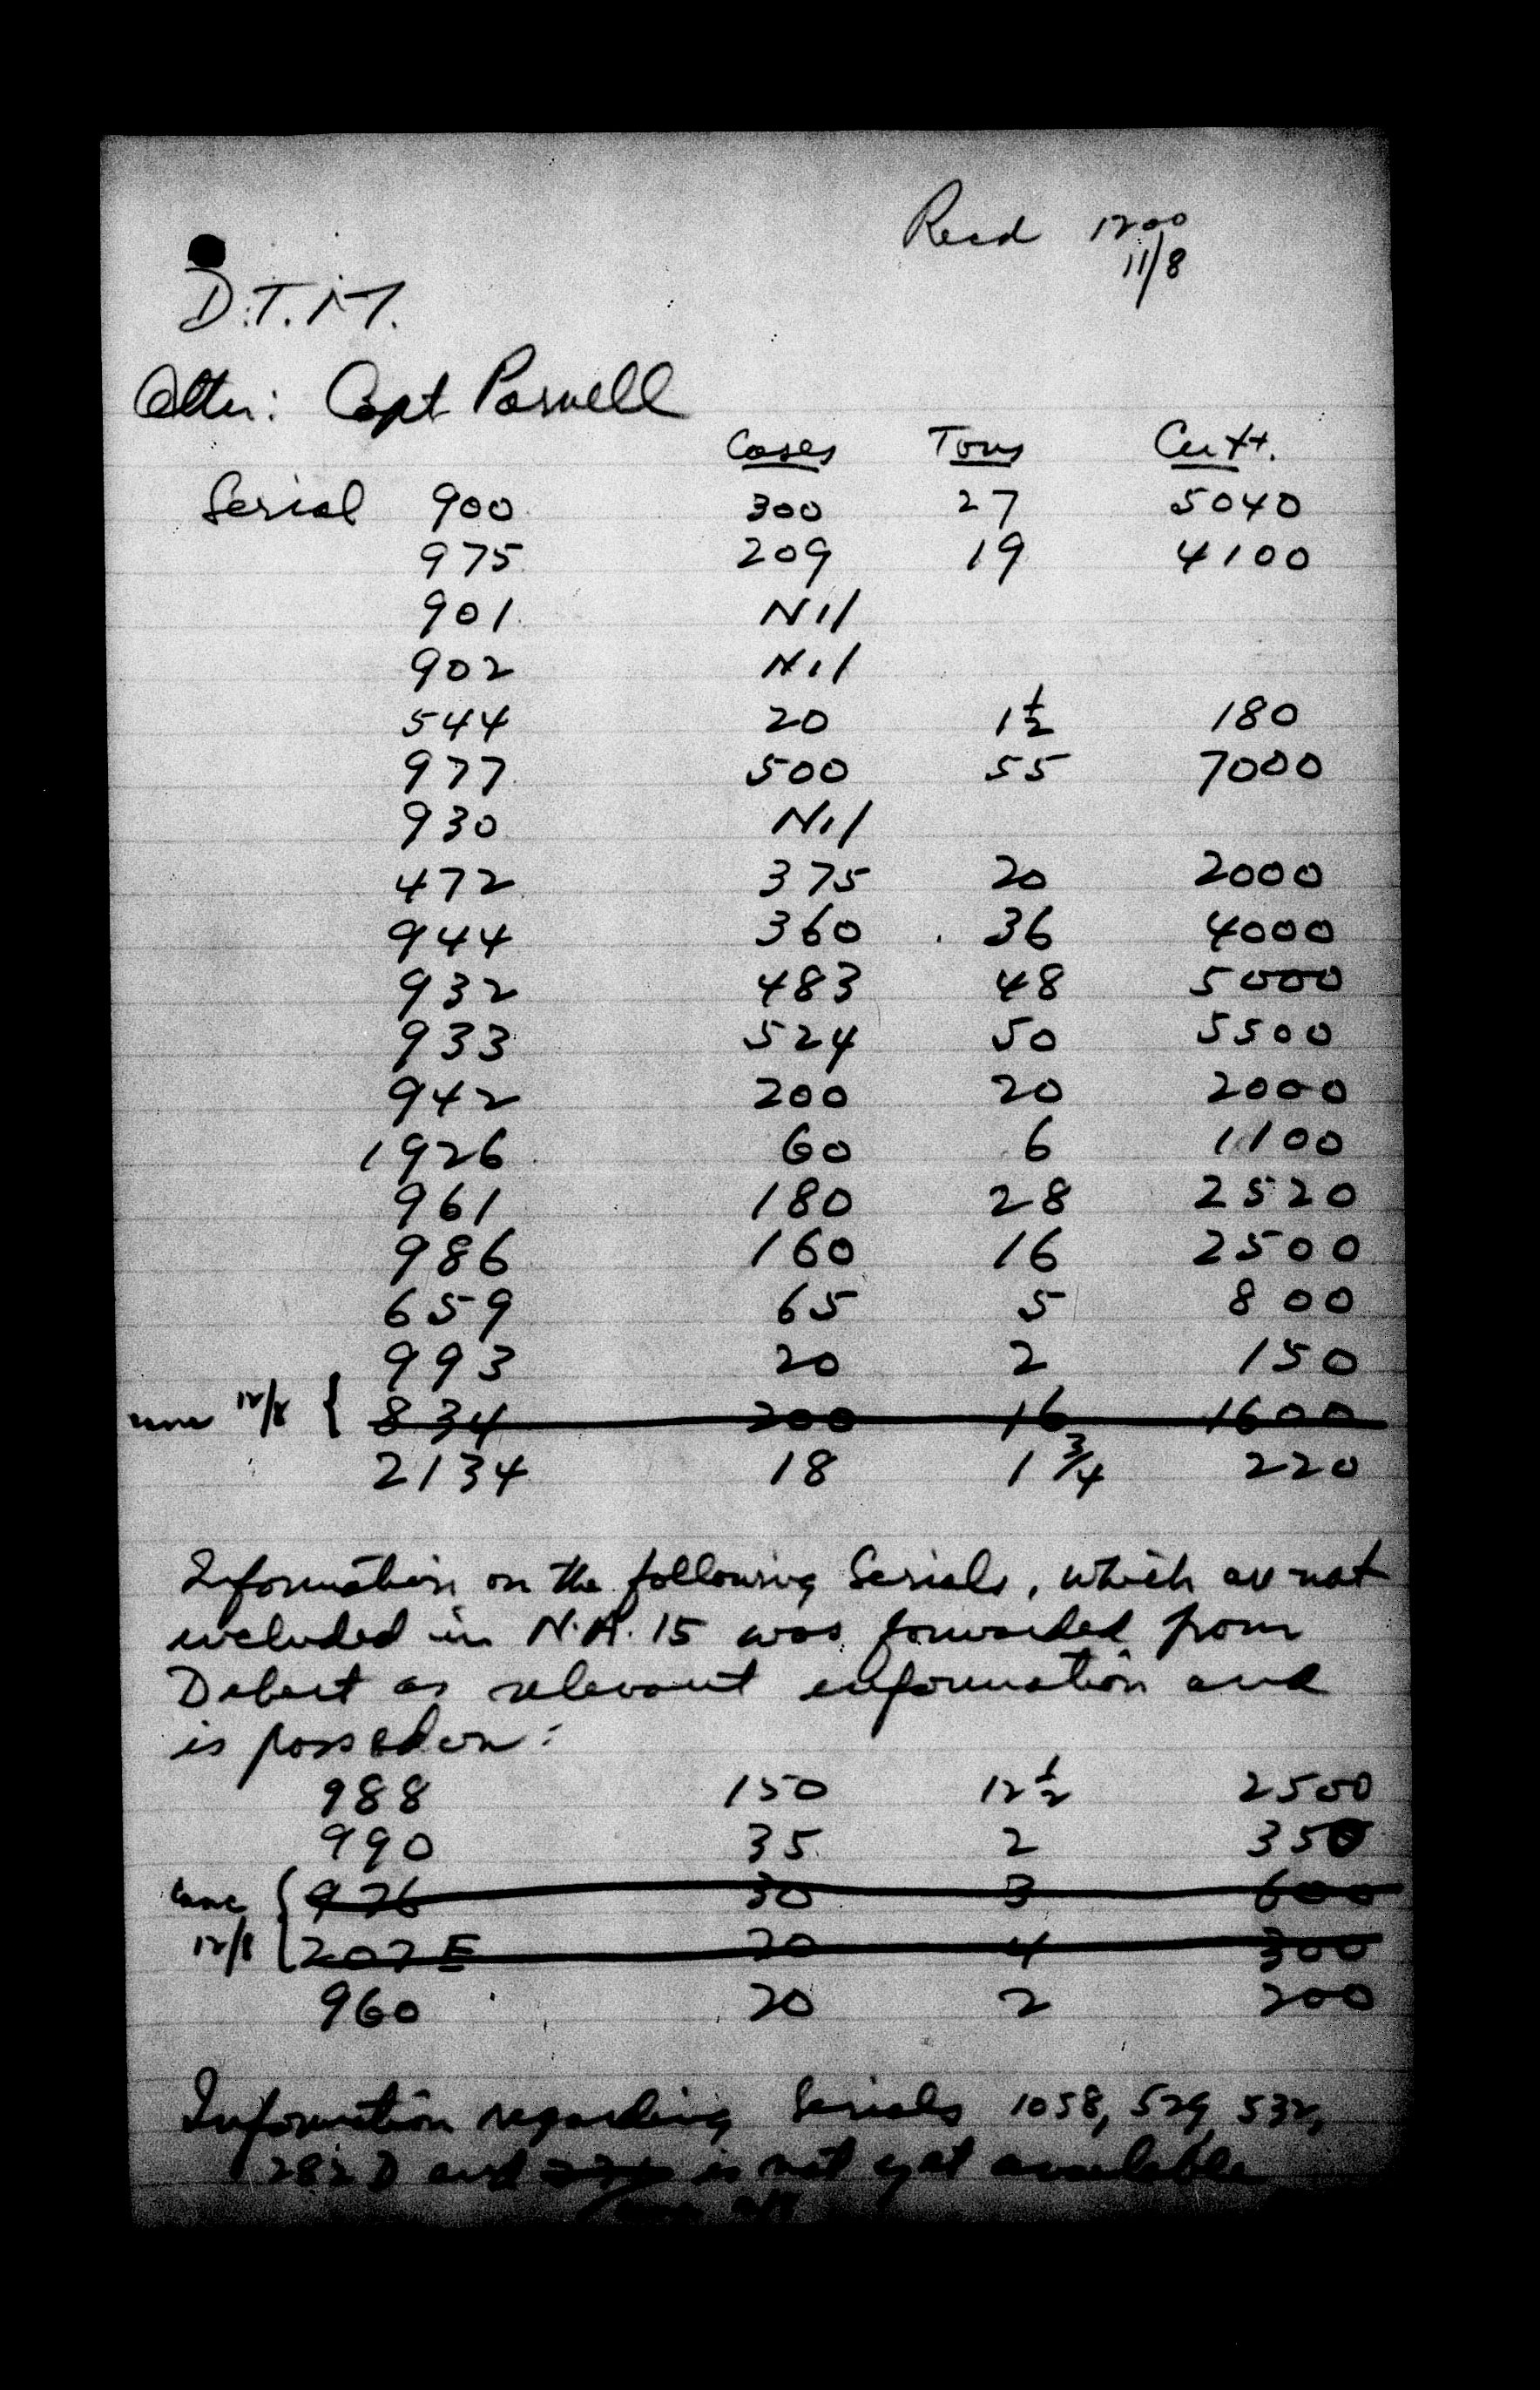 Recd 1200
11/8
D.T.M.
Attn: Capt Parnell
Cases Tons Cu ft.
Serial 900 300 27 5040
975 209 19 4100
901 Nil
902 Nil
544 20 1½ 180
977 500 55 7000
930 Nil
472 375 20 2000
944 360 36 4000
932 483 48 5000
933 524 50 5500
942 200 20 2000
1926 60 6 1100
961 180 28 2520
986 160 16 2500
659 65 5 800
993 20 2 150
12/8 { 834 200 16 1600
2134 18 1¾ 220
Information on the following Serials, which are not
included in N.A. 15 was forwarded from
Debert as relevant information and
is passed on:
988 150 12½ 2500
990 35 2 350
{ 976 30 3 600
12/8 202 E 20 4 300
960 20 2 200
Information regarding Serials 1058, 529, 532,
282 D and is not yet available